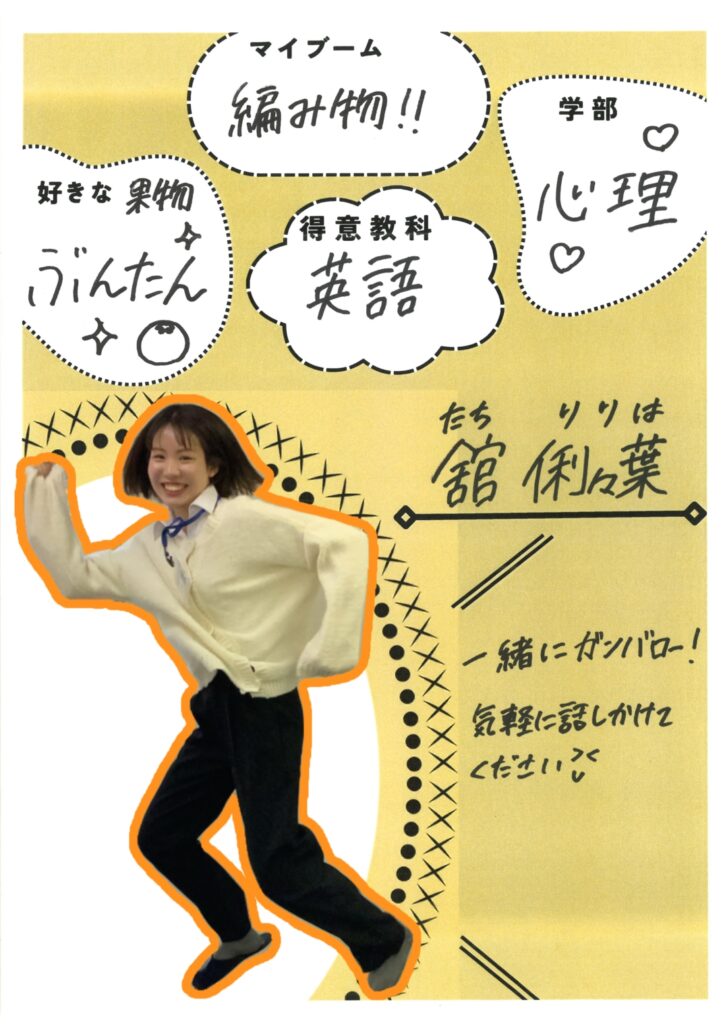 マイブーム
編み物!!
学部
心理
好きな 果物
ぶんたん
得意教科
英語
たち りりは
舘 俐々葉
一緒にガンバロー!
気軽に話しかけて
ください